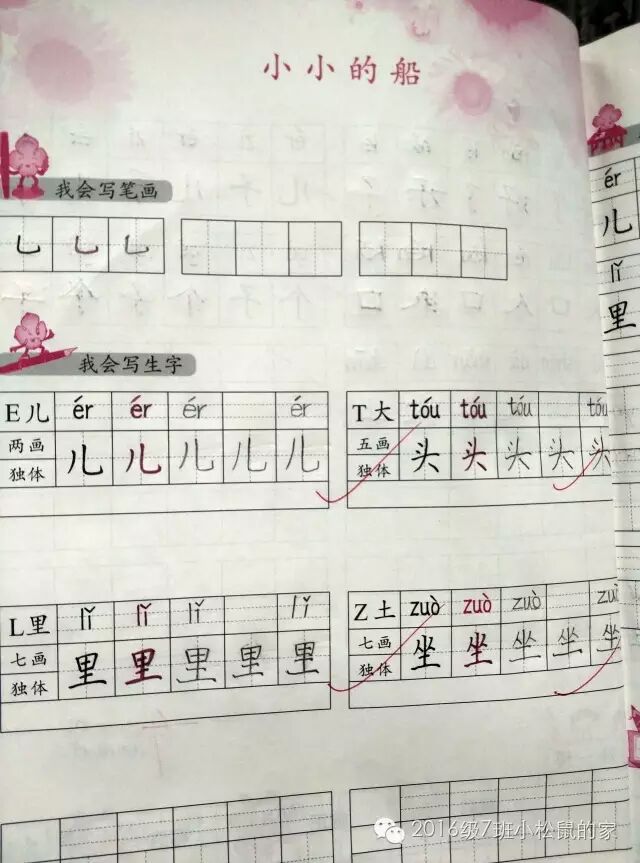 小小的船
我会写笔画
乚 乚 乚
我会写生字
E 儿 ér ér ér ér
两画 独体 儿 儿 儿 儿 儿
T 大 tóu tóu tóu tóu
五画 独体 头 头 头 头 头
L 里 lǐ lǐ lǐ lǐ
七画 独体 里 里 里 里 里
Z 土 zuò zuò zuò
七画 独体 坐 坐 坐 坐 坐
ér
儿
lǐ
里
2016级7班小松鼠的家